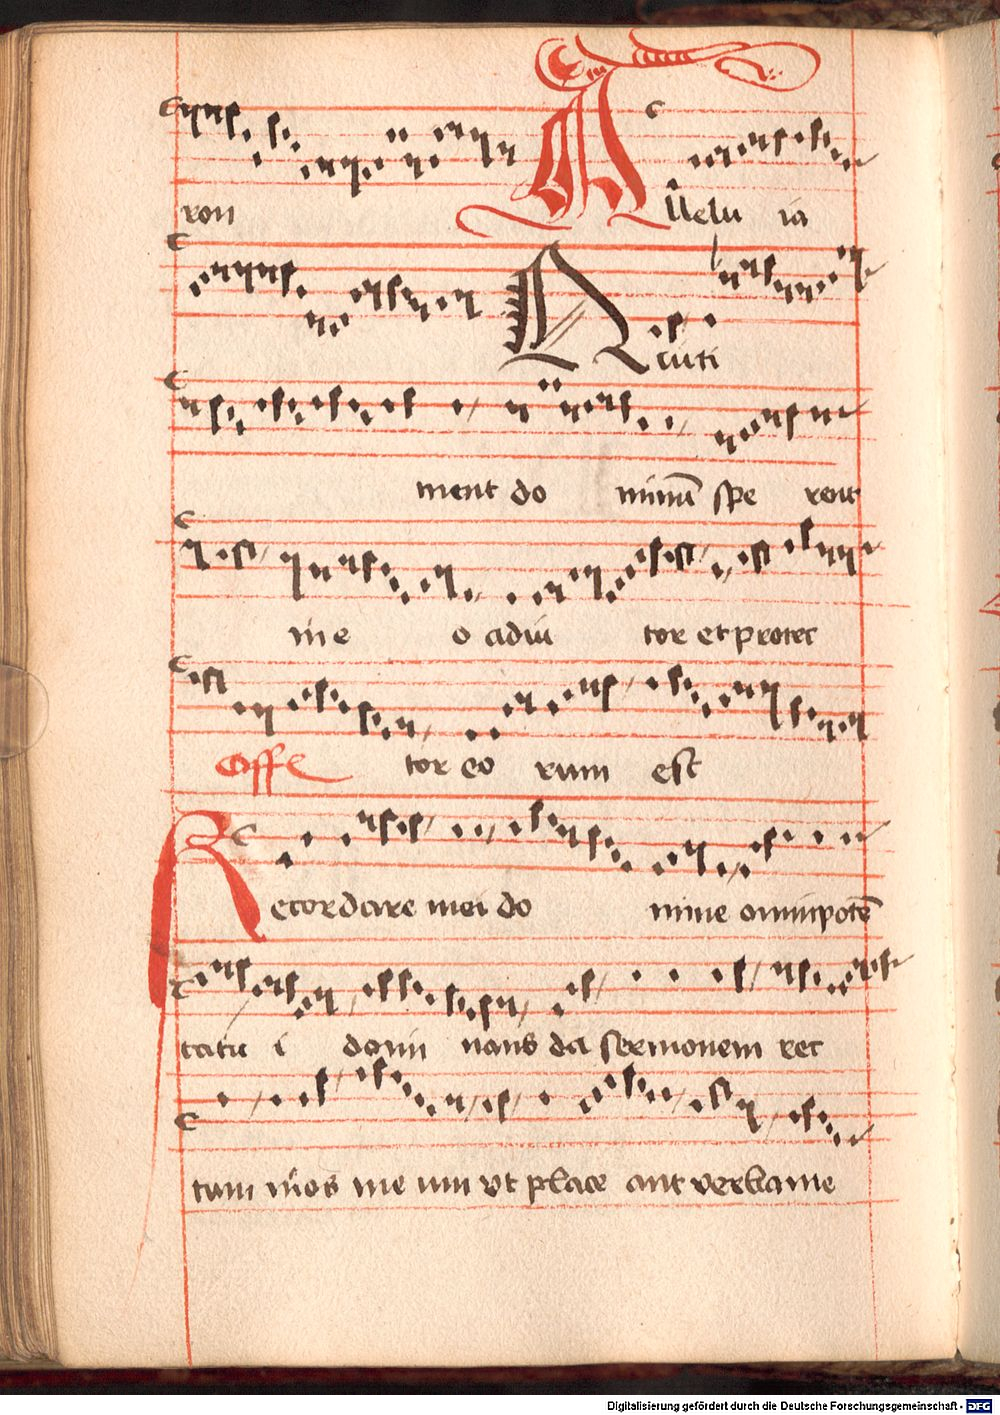 ron Alleluia
Qui ti
ment do minū spe rent
in e o adiu tor et protec
Offe tor eo rum est
Recordare mei do mine omnipotē
tatu i domi nans da sermonem rec
tum in os me um vt place ant verba me
Digitalisierung gefördert durch die Deutsche Forschungsgemeinschaft - DFG